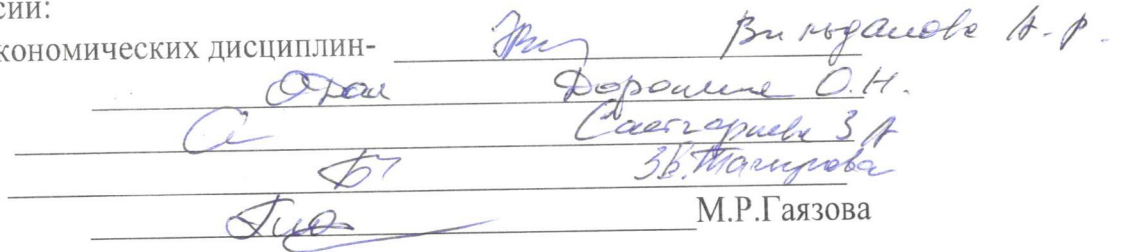 сии:
кономических дисциплин- Вильданова А.Р.
Доронина О.Н.
Саетгариева З А
З.Б.Тагирова
М.Р.Гаязова